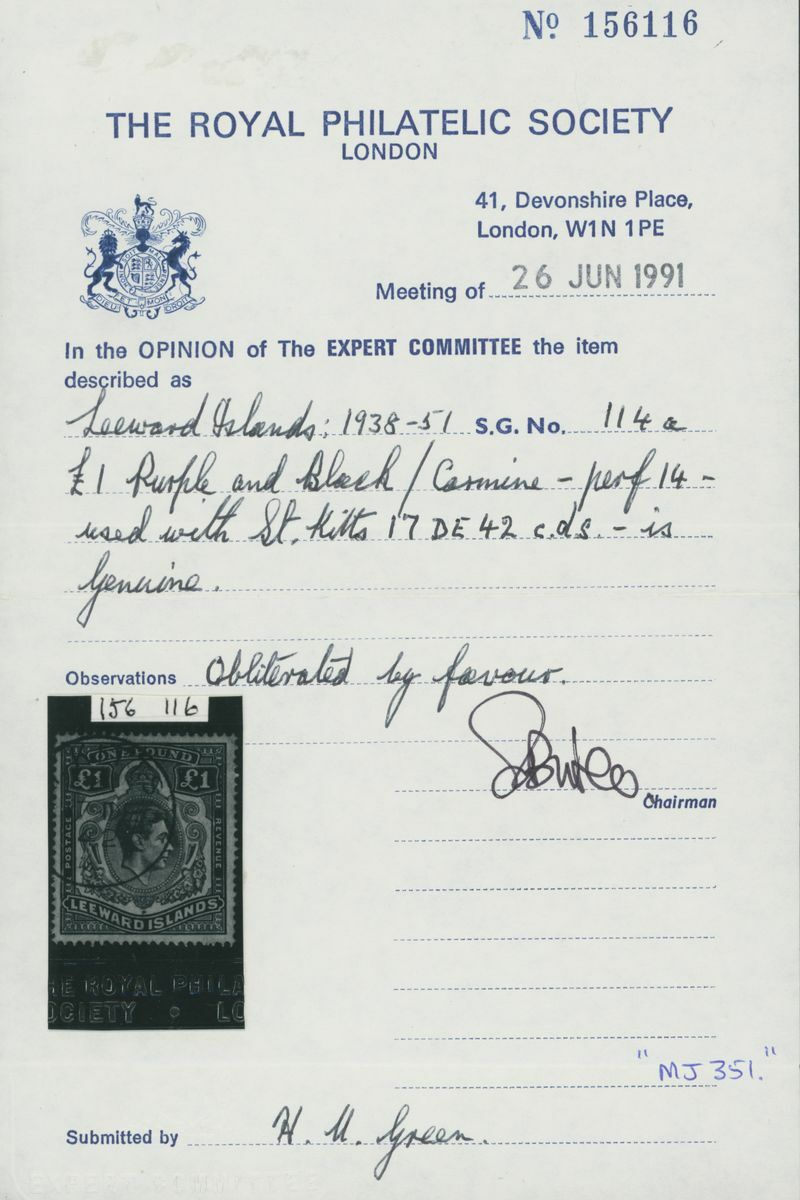 No 156116
THE ROYAL PHILATELIC SOCIETY
LONDON
41, Devonshire Place,
London, W1N 1PE
Meeting of 26 JUN 1991
In the OPINION of The EXPERT COMMITTEE the item
described as
Leeward Islands: 1938-51 S.G. No. 114a
£1 Purple and Black / Carmine - perf 14 -
used with St. Kitts 17 DE 42 c.d.s. - is
Genuine.
Observations Obliterated by favour.
156 116
ONE POUND
£1 £1
POSTAGE REVENUE
LEEWARD ISLANDS
HE ROYAL PHILA
OCIETY • LO
Chairman
"MJ 351."
Submitted by H. M. Green.
EXPERT COMMITTEE